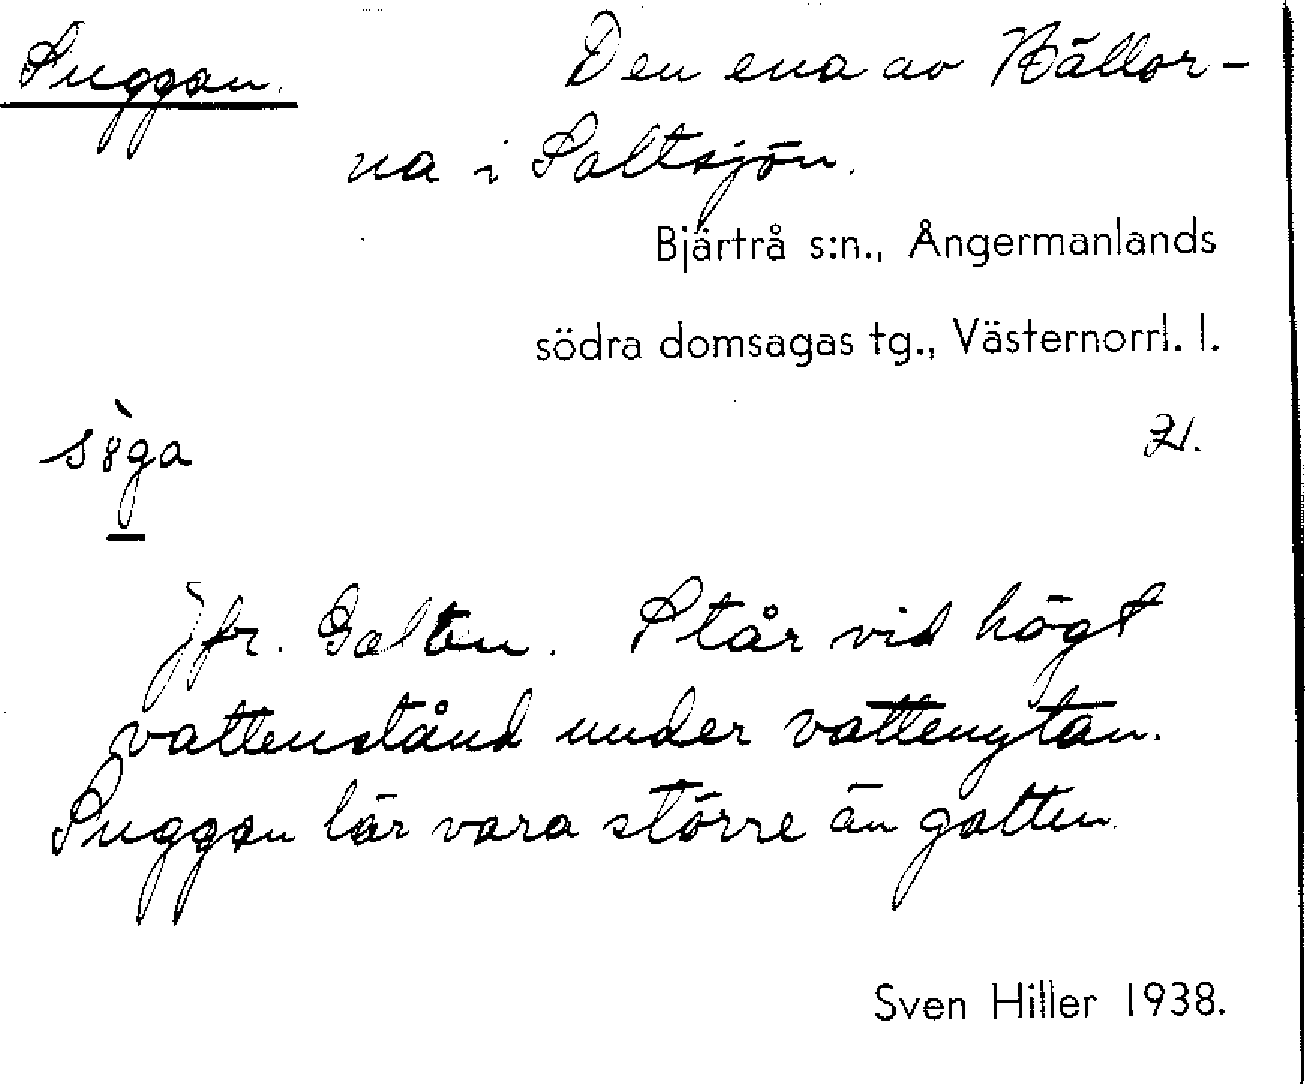 Suggan. Den ena av Hällor-
na i Saltsjön.
Bjärtrå s:n., Ångermanlands
södra domsagas tg., Västernorrl. l.
Jfr. Galten. Står vid högt
vattenstånd under vattenytan.
Suggan lär vara större än galten.
Sven Hiller 1938.